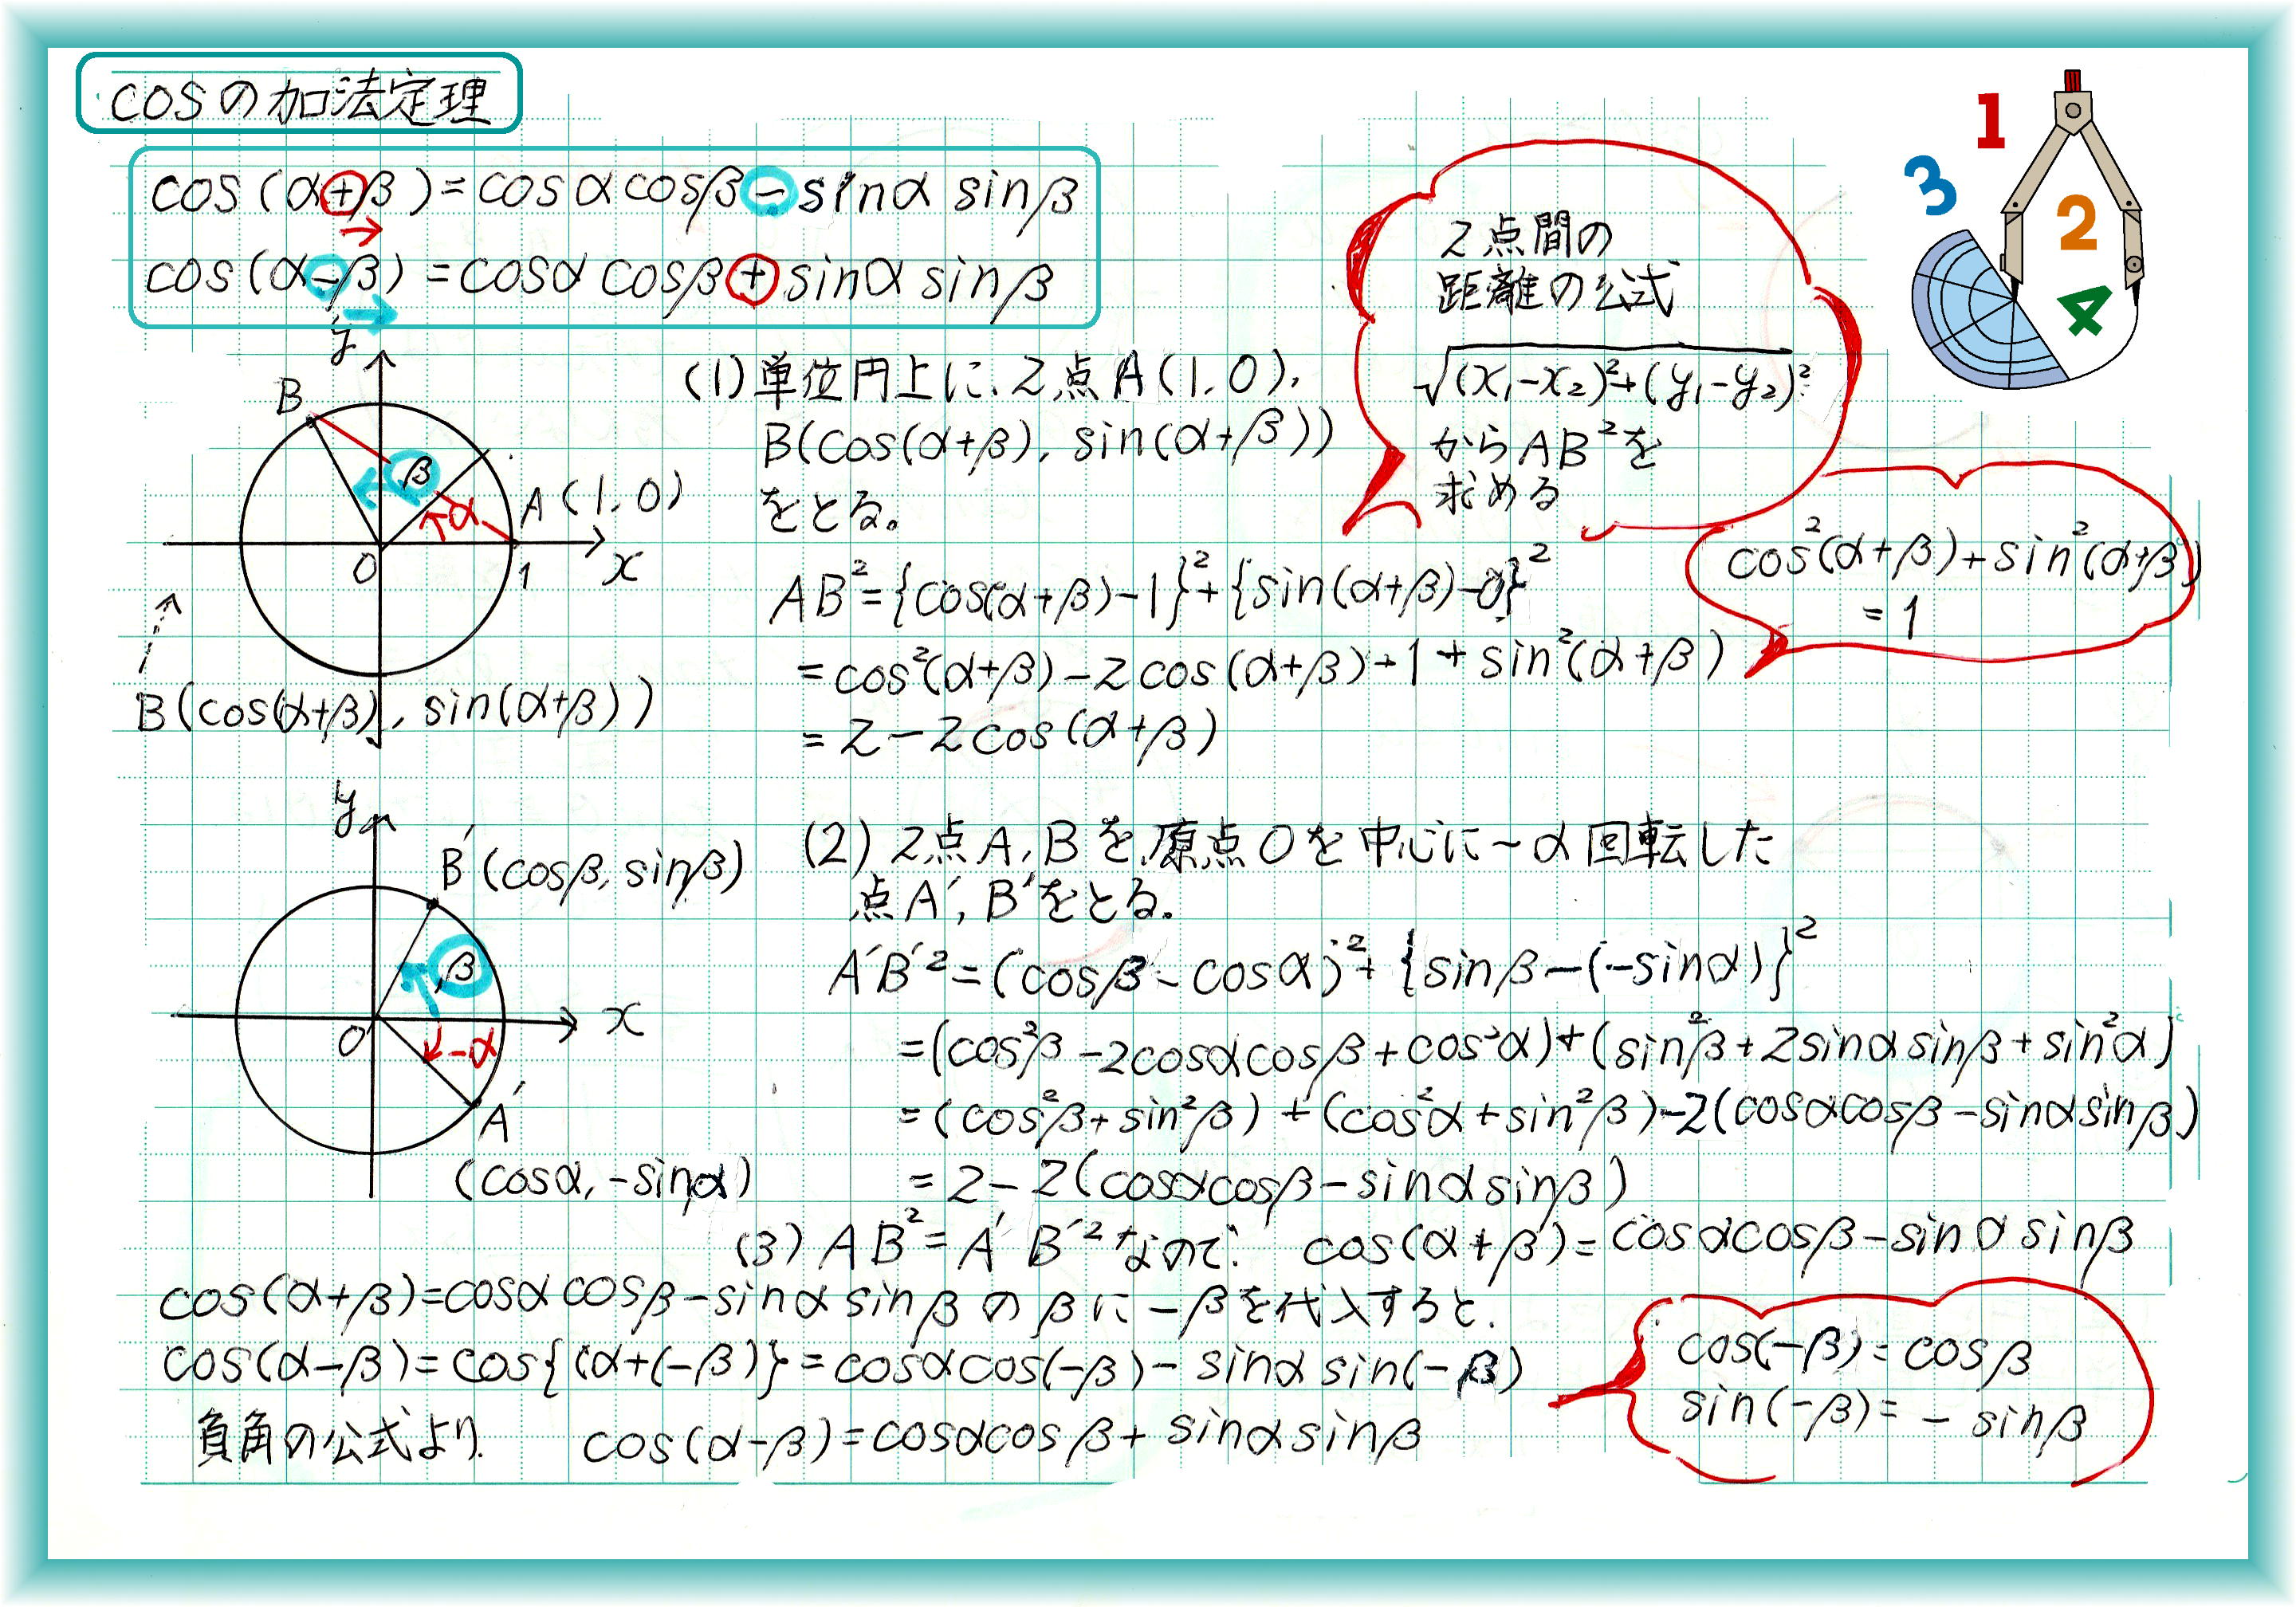 cosの加法定理
cos(α+β)=cosαcosβ-sinα sinβ
cos(α-β)=cosα cosβ+sinα sinβ
1
3
2
4
2点間の
距離の公式
√(x₁-x₂)²+(y₁-y₂)²
からAB²を
求める
y
B
β
α
A(1,0)
O
1
x
B(cos(α+β), sin(α+β))
(1)単位円上に、2点A(1,0),
B(cos(α+β), sin(α+β))
をとる。
AB²={cos(α+β)-1}²+{sin(α+β)-0}²
=cos²(α+β)-2cos(α+β)+1+sin²(α+β)
=2-2cos(α+β)
cos²(α+β)+sin²(α+β)
=1
y
B′(cosβ, sinβ)
β
O
x
-α
A′
(cosα, -sinα)
(2)2点A,Bを、原点Oを中心に-α回転した
点A′, B′をとる。
A′B′²=(cosβ-cosα)²+{sinβ-(-sinα)}²
=(cos²β-2cosαcosβ+cos²α)+(sin²β+2sinαsinβ+sin²α)
=(cos²β+sin²β)+(cos²α+sin²β)-2(cosαcosβ-sinαsinβ)
=2-2(cosαcosβ-sinαsinβ)
(3)AB²=A′B′²なので、 cos(α+β)=cosαcosβ-sinα sinβ
cos(α+β)=cosα cosβ-sinα sinβのβに-βを代入すると、
cos(α-β)=cos{(α+(-β)}=cosαcos(-β)-sinα sin(-β)
負角の公式より、 cos(α-β)=cosαcosβ+sinαsinβ
cos(-β)=cosβ
sin(-β)=-sinβ